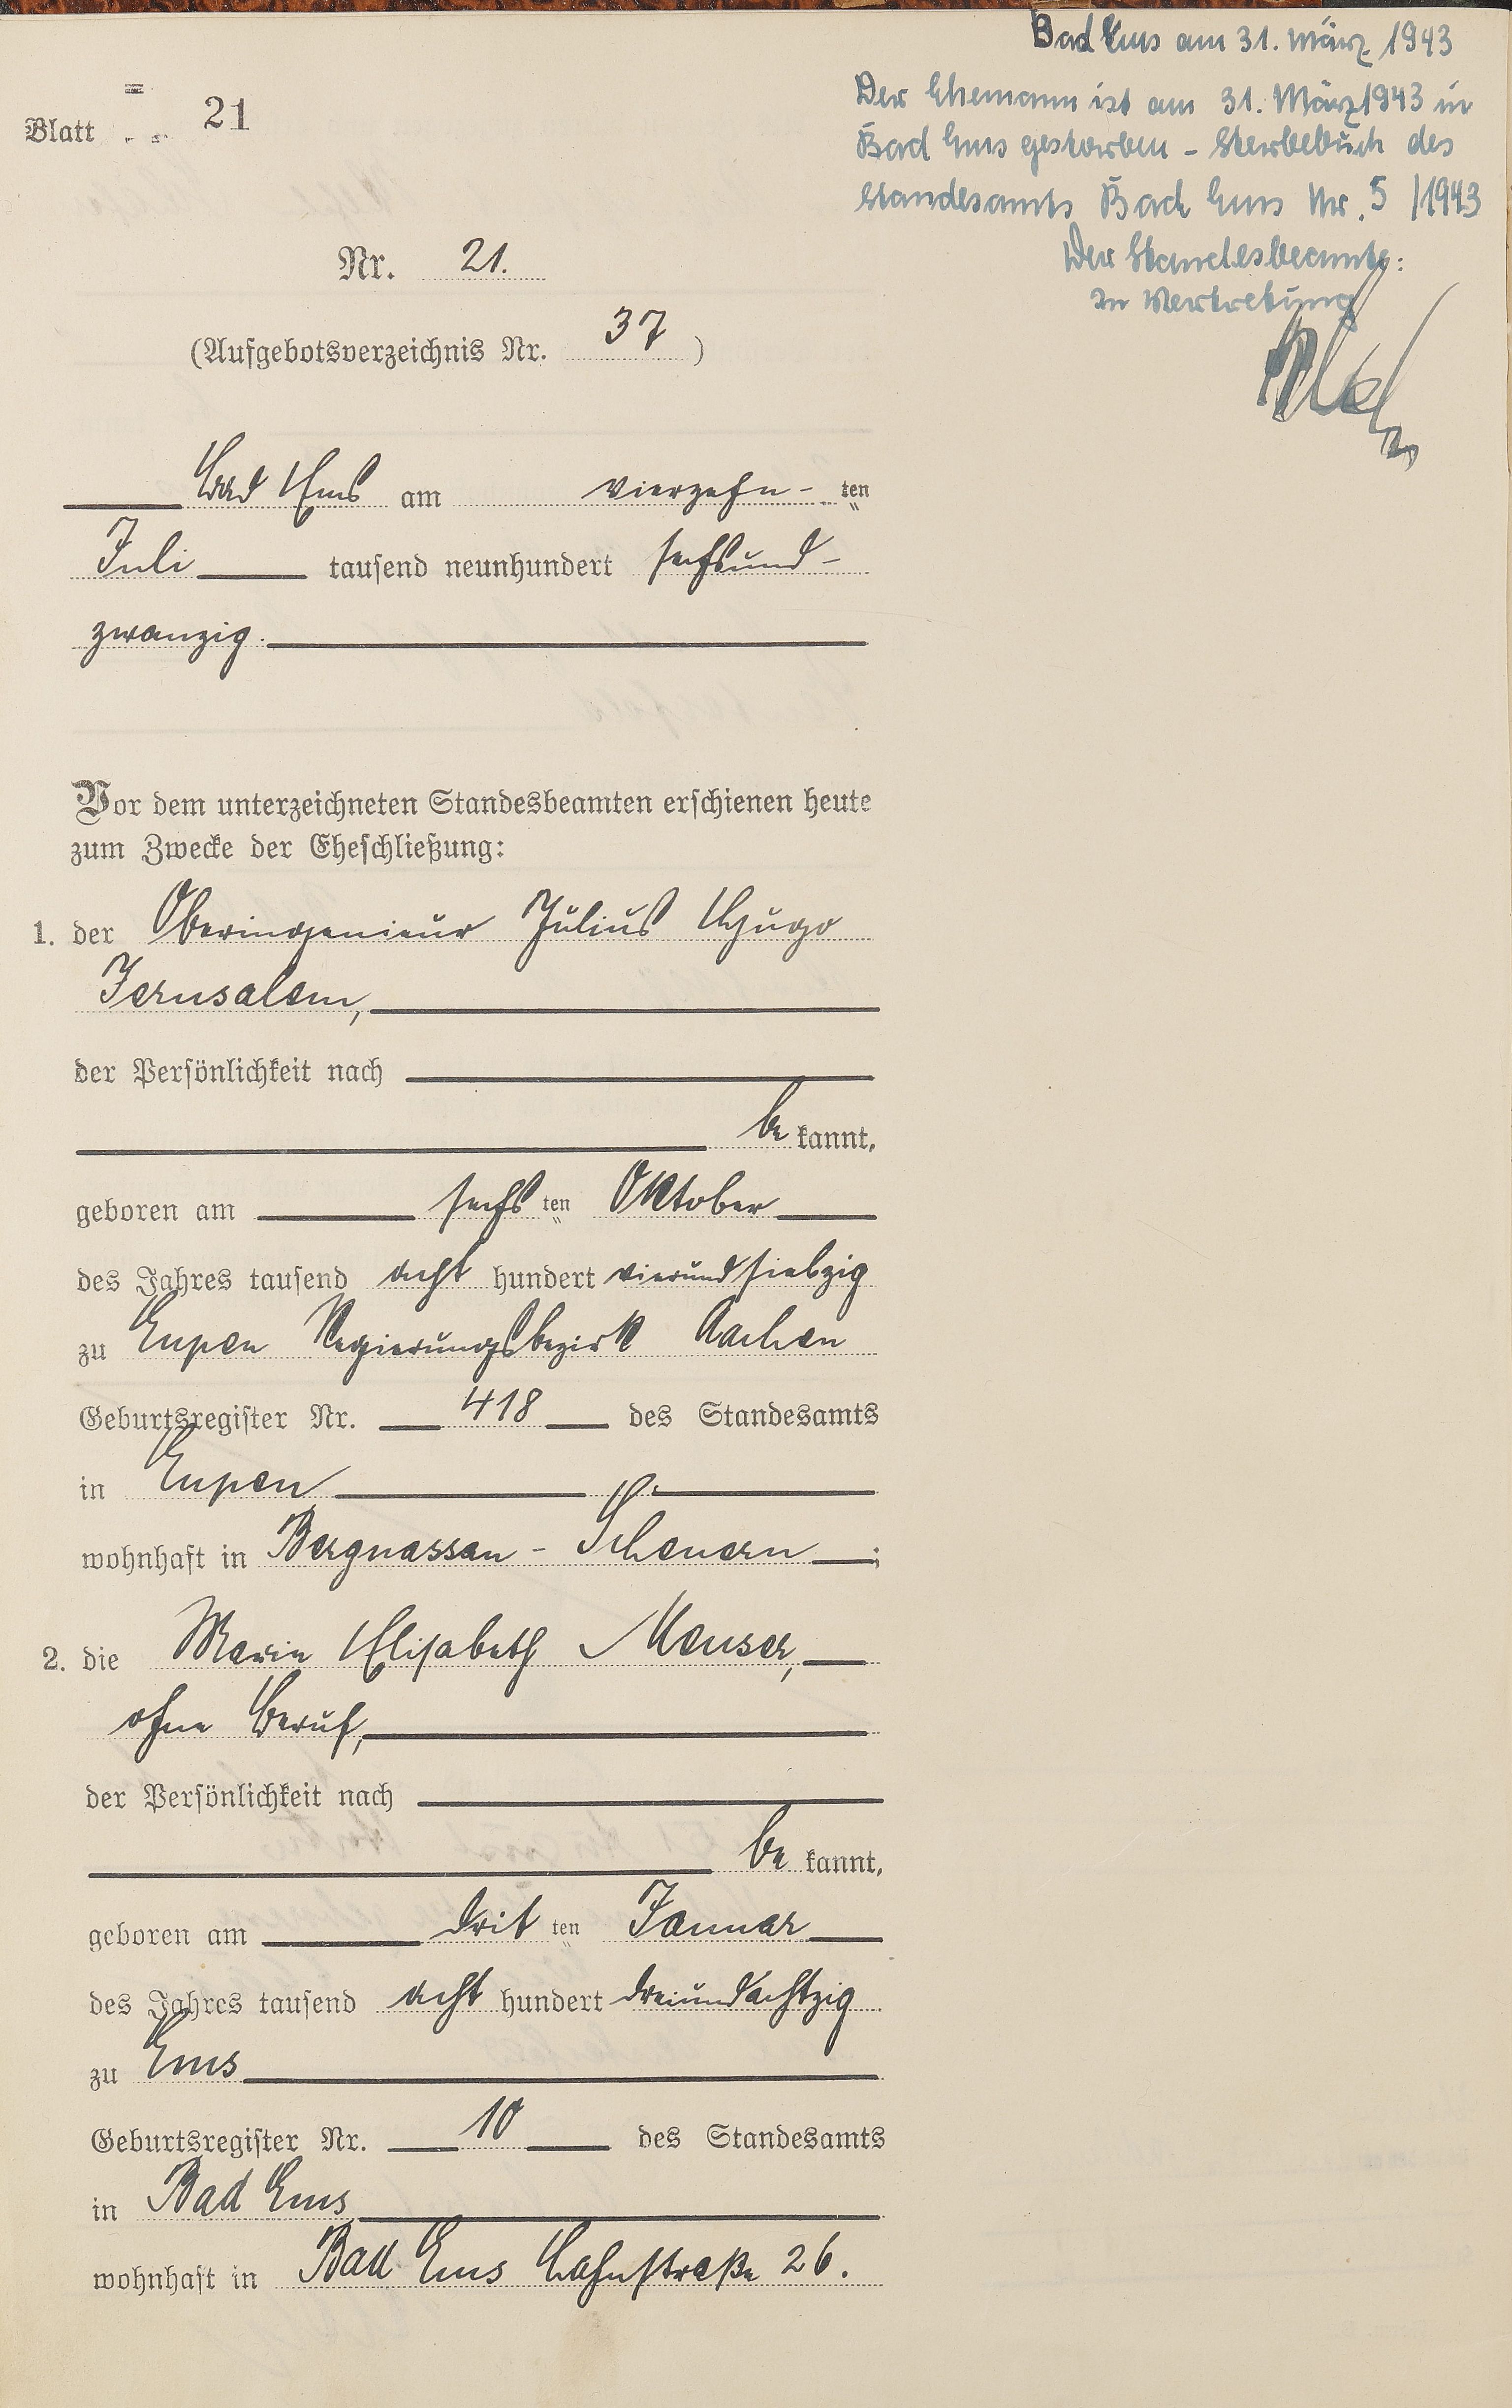 Blatt 21
Nr. 21.
(Aufgebotsverzeichnis Nr. 37)
Bad Ems am vierzehn- ten
Juli tausend neunhundert sechsund-
zwanzig.
Vor dem unterzeichneten Standesbeamten erschienen heute
zum Zwecke der Eheschließung:
1. der Oberingenieur Julius Hugo
Jerusalem,
der Persönlichkeit nach
be kannt,
geboren am sechs ten Oktober
des Jahres tausend acht hundert vierundsiebzig
zu Eupen Regierungsbezirk Aachen
Geburtsregister Nr. 418 des Standesamts
in Eupen
wohnhaft in Bergnassau - Scheuern ;
2. die Marie Elisabeth Meuser,
ohne Beruf,
der Persönlichkeit nach
be kannt,
geboren am drit ten Januar
des Jahres tausend acht hundert dreiundachtzig
zu Ems
Geburtsregister Nr. 10 des Standesamts
in Bad Ems
wohnhaft in Bad Ems Lahnstraße 26.
Bad Ems am 31. März 1943
Der Ehemann ist am 31. März 1943 in
Bad Ems gestorben - Sterbebuch des
Standesamts Bad Ems Nr. 5 /1943
Der Standesbeamte:
In Vertretung